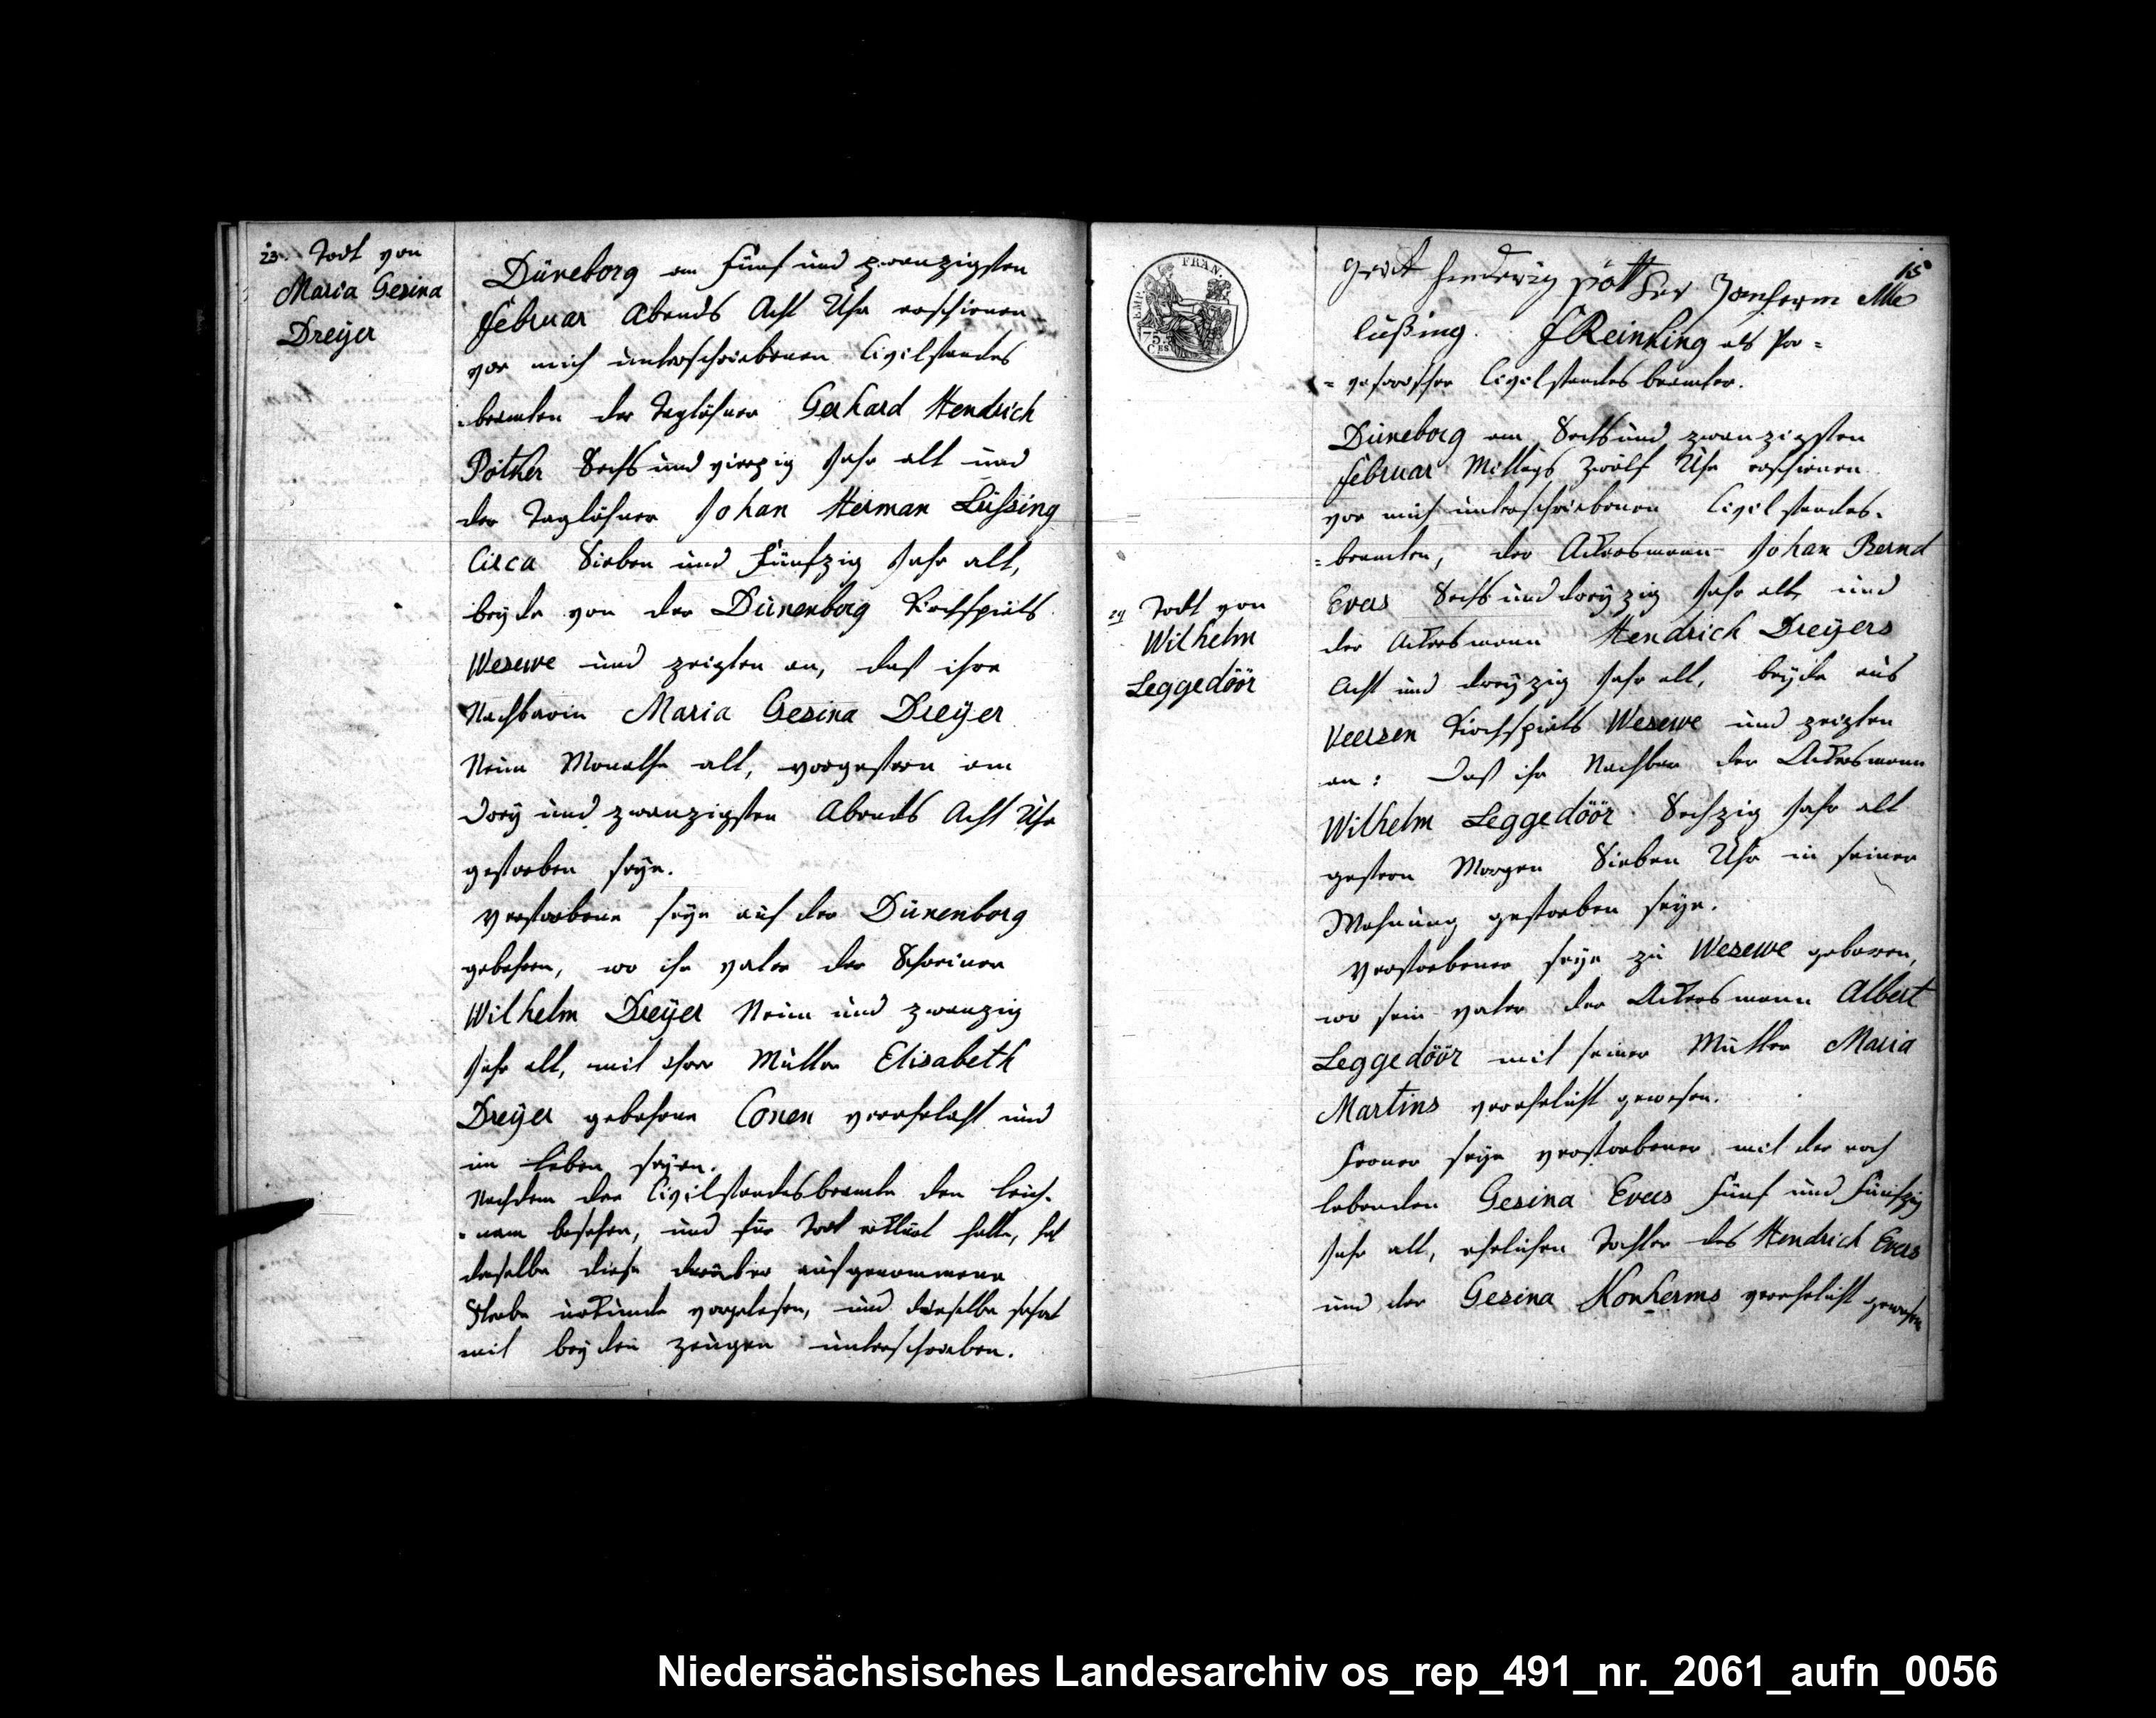 23. Todt von
Maria Gesina
Dreÿer
Düneborg am Fünf und zwanzigsten
Februar Abends Acht Uhr erschienen
vor mich unterschriebenen Civilstandes
=beamten der Taglöhner Gerhard Hendrich
Pötker Sechs und vierzig Jahr alt und
der Taglöhner Johan Herman Lüssing
Circa Sieben und Fünfzig Jahr alt,
beyde von der Dünenborg Kirchspiels
Wesuwe und zeigten an, daß ihre
Nachbarin Maria Gesina Dreÿer
Neun Monathe alt, vorgestern am
dreÿ und zwanzigsten Abends Acht Uhr
gestorben seÿe.
Verstorbene seÿe auf der Dünenborg
gebohren, wo ihr vater der Schreiner
Wilhelm Dreÿer Neun und zwanzig
Jahr alt, mit ihrer Mutter Elisabeth
Dreÿer gebohrne Conen verehelicht und
im Leben seÿen.
Nachdem der Civilstandesbeamte den Leich=
=nam besehen, und für Todt erklärt hatte, hat
derselbe diese darüber aufgenommene
Sterbe urkunde vorgelesen, und dieselbe sofort
mit beyden zeugen unterschrieben.
15
EMP. FRAN.
75
CES
gerit Hinderig pötker Janherm
lüßing. J Reinking als Pro=
=visorischer Civilstandesbeamter.
24 Todt von
Wilhelm
Leggedöör
Düneborg am Sechs und zwanzigsten
Februar Mittags zwölf Uhr erschienen
vor mich unterschriebenen Civilstandes=
=beamten, der Ackersmann Johan Bernd
Evers Sechs und dreÿzig Jahr alt, und
der Ackersmann Hendrich Dreÿers
Acht und dreÿzig Jahr alt, beÿde aus
Veersen Kirchspiels Wesuwe und zeigten
an: Daß ihr Nachbar der Ackersmann
Wilhelm Leggedöör Sechzig Jahr alt
gestern Morgen Sieben Uhr in seiner
Wohnung gestorben seÿe.
Verstorbener seÿe zu Wesuwe geboren,
wo sein vater der Ackersmann Albert
Leggedöör mit seiner Mutter Maria
Martins verehelicht gewesen.
Ferner seÿe verstorbener mit der noch
lebenden Gesina Evers Fünf und Fünfzig
Jahr alt, ehelichen Tochter des Hendrich Evers
und der Gesina Konherms verehelicht gewesen
Niedersächsisches Landesarchiv os_rep_491_nr._2061_aufn_0056